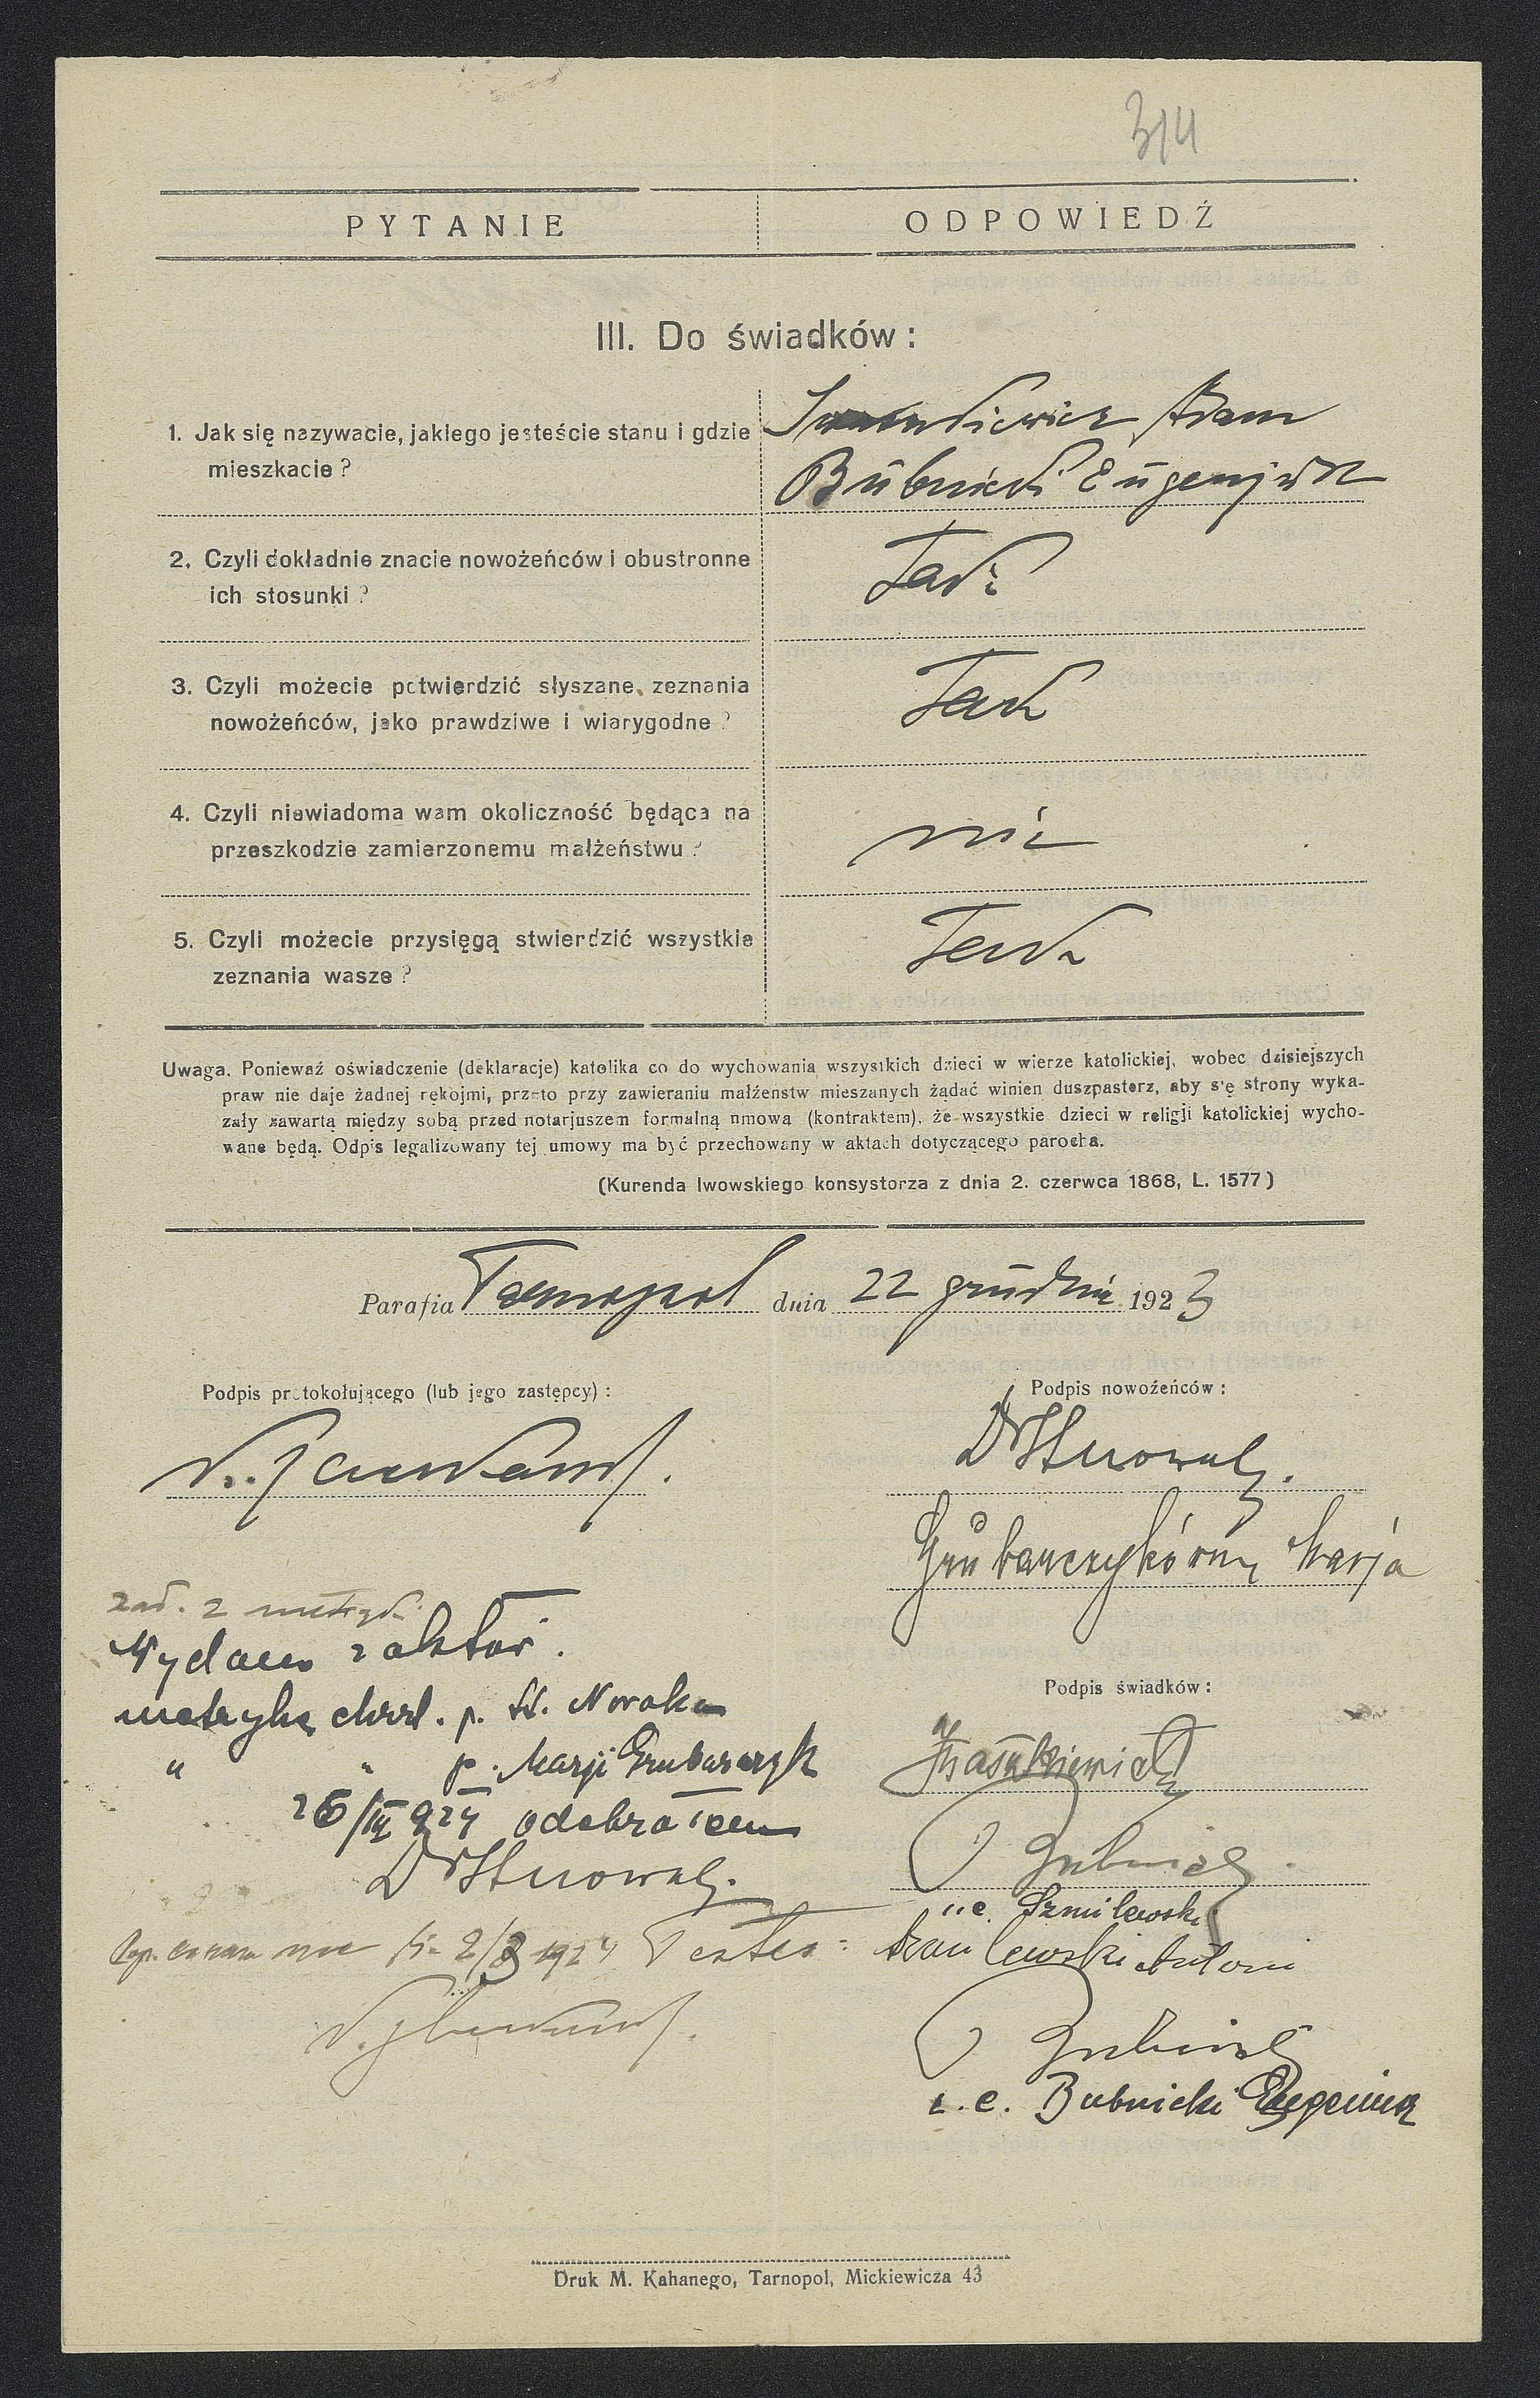 314
PYTANIE
ODPOWIEDŹ
III. Do świadków:
1. Jak się nazywacie, jakiego jesteście stanu i gdzie
mieszkacie?
Adam
Bubnicki Eugenjusz
2. Czyli dokładnie znacie nowożeńców i obustronne
ich stosunki?
Tak
3. Czyli możecie potwierdzić słyszane zeznania
nowożeńców, jako prawdziwe i wiarygodne?
Tak
4. Czyli niewiadoma wam okoliczność będąca na
przeszkodzie zamierzonemu małżeństwu?
nie
5. Czyli możecie przysięgą stwierdzić wszystkie
zeznania wasze?
Tak
Uwaga. Ponieważ oświadczenie (deklaracje) katolika co do wychowania wszystkich dzieci w wierze katolickiej, wobec dzisiejszych
praw nie daje żadnej rękojmi, przeto przy zawieraniu małżenstw mieszanych żądać winien duszpasterz, aby się strony wyka-
zały zawartą między sobą przed notarjuszem formalną nmową (kontraktem), że wszystkie dzieci w religji katolickiej wycho-
wane będą. Odpis legalizowany tej umowy ma być przechowany w aktach dotyczącego parocha.
(Kurenda lwowskiego konsystorza z dnia 2. czerwca 1868, L. 1577)
Parafia Tarnopol dnia 22 grudnia 1923
Podpis protokołującego (lub jego zastępcy):
Podpis nowożeńców:
Dr St Nowak.
Grubarczykówna Marja
zał. 2 metryki
Wydano z aktów.
metrykę chrzt. p. St. Nowaka
" " p. Marji Grubarczyk
26/III 924 odebrałem
Dr St Nowak.
Podpis świadków:
Bubnicki.
i. e. Szmilewski
2/3 1924 Testes: Antoni
Bubnicki
i. e. Bubnicki Eugeniusz
Druk M. Kahanego, Tarnopol, Mickiewicza 43